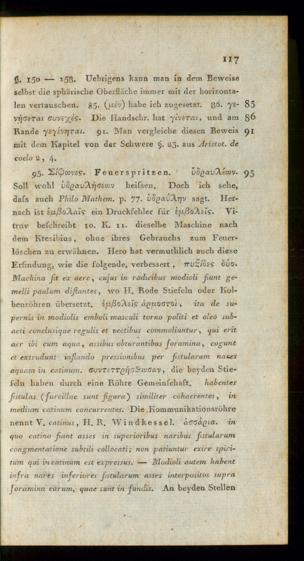 117
§. 150 — 158. Uebrigens kann man in dem Beweise
selbst die sphärische Oberfläche immer mit der horizonta-
len vertauschen. 85. (μὲν) habe ich zugesetzt. 86. γε- 85
νήσεται συνεχές. Die Handschr. hat γίνεται, und am 86
Rande γεγίνηται. 91. Man vergleiche diesen Beweis 91
mit dem Kapitel von der Schwere §. 23. aus Aristot. de
coelo 2, 4.
95. Σίφωνος. Feuerspritzen. ὑδραυλέων. 95
Soll wohl ὑδραυλήσεων heissen. Doch ich sehe,
dass auch Philo Mathem. p. 77. ὑδραύλην sagt. Her-
nach ist ἐμβολαῖς ein Druckfehler für ἐμβολεῖς. Vi-
truv beschreibt 10. K. 11. dieselbe Maschine nach
dem Ktesibius, ohne ihres Gebrauchs zum Feuer-
löschen zu erwähnen. Hero hat vermuthlich auch diese
Erfindung, wie die folgende, verbessert, πυξίδες δύο.
Machina fit ex aere, cujus in radicibus modioli fiunt ge-
melli paulum distantes, wo H. Rode Stiefeln oder Kol-
benröhren übersetzt. ἐμβολεῖς ἁρμοστοί, ita de su-
pernis in modiolis emboli masculi torno politi et oleo sub-
acti conclusique regulis et vectibus commoliuntur, qui erit
aer ibi cum aqua, assibus obturantibus foramina, cogunt
et extrudunt inflando pressionibus per fistularum nares
aquam in catinum. συντετρήσθωσαν, die beyden Stie-
feln haben durch eine Röhre Gemeinschaft, habentes
fistulas (furcillae sunt figura) similiter cohaerentes, in
medium catinum concurrentes. Die Kommunikationsröhre
nennt V. catinus, H. R. Windkessel. ἀσσάρια. in
quo catino fiant asses in superioribus naribus fistularum
coagmentatione subtili collocati; non patiuntur exire spiri-
tum qui in catinum est expressus. — Modioli autem habent
infra nares inferiores fistularum asses interpositos supra
foramina earum, quae sunt in fundis. An beyden Stellen